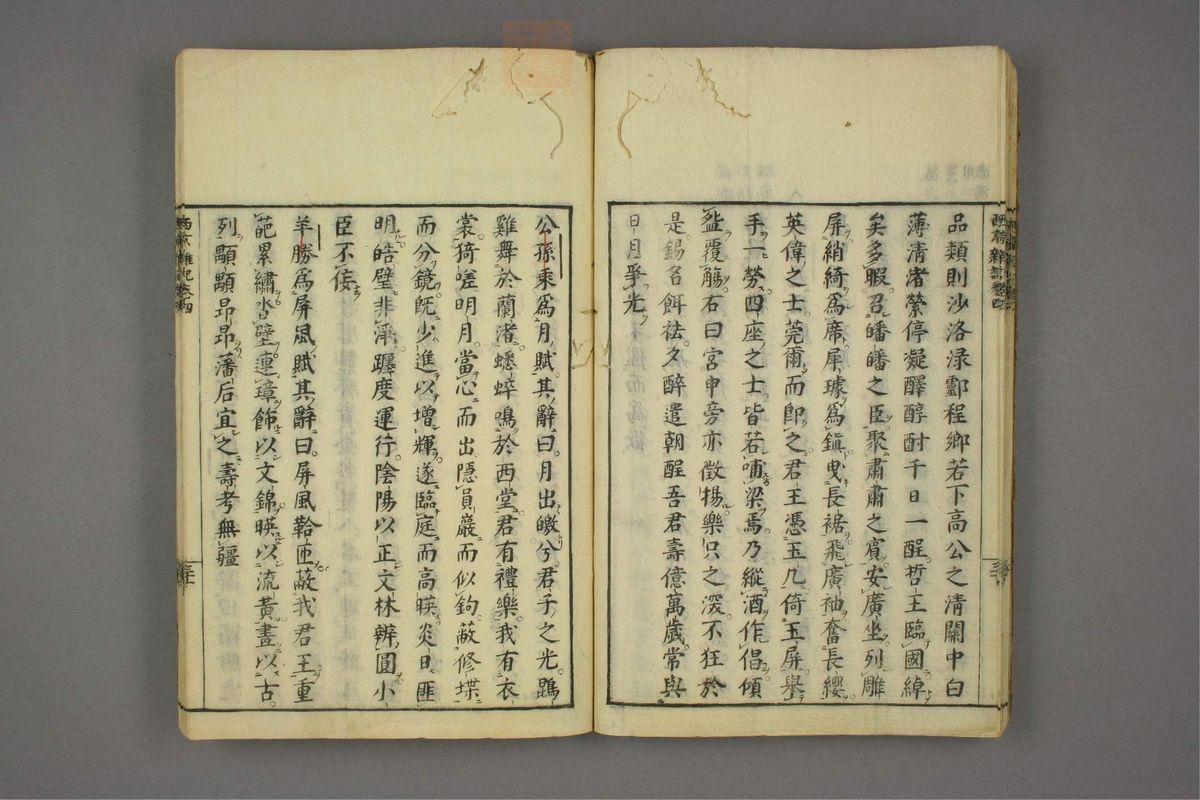 品類則沙洛淥酃程鄉若下高公之清關中白
薄淸渚縈停凝醳醇酎千日一醒哲王臨國綽
矣多暇召皤皤之臣聚肅肅之賓安廣坐列雕
屏綃綺爲席犀璩爲鎭曳長裾飛廣袖奮長纓
英偉之士莞爾而卽之君王憑玉几倚玉屏擧
手一勞四座之士皆若哺梁焉乃縱酒作倡傾
盌覆觴右曰宮申旁亦徵揚樂只之深不狂於
是錫名餌祛夕醉遣朝酲吾君壽億萬歲常與
日月爭光
公孫乘爲月賦其辭曰月出皦兮君子之光鵾
雞舞於蘭渚蟋蟀鳴於西堂君有禮樂我有衣
裳猗嗟明月當心而出隱員巖而似鉤蔽修堞
而分鏡旣少進以增輝遂臨庭而高映炎日匪
明皓璧非淨躔度運行陰陽以正文林辨囿小
臣不佞
羊勝爲屏風賦其辭曰屏風鞈匝蔽我君王重
葩累繡沓璧連璋飾以文錦映以流黃畫以古
列顒顒昂昂藩后宜之壽考無疆